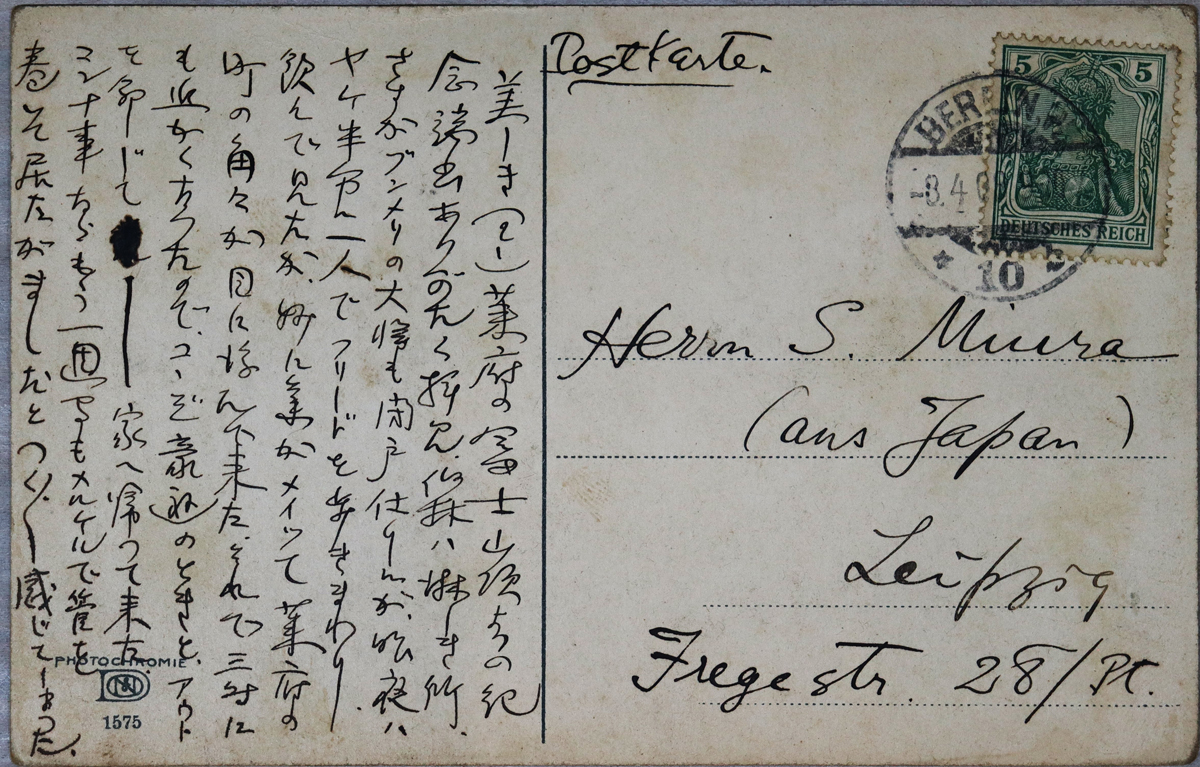 Postkarte.
5 5
DEUTSCHES REICH
BERLIN
-8.4
10
Herrn S. Miura
(aus Japan)
Leipzig
Fregestr. 28/Pt.
美しき 莱府の富士山頂よりの紀
念端書ありがたく拝見、伯林ハ淋しき所、
さすがブンメリの大将も閉戸 昨夜ハ
ヤケ半分に一人でフリードを歩きまわり
飲んで見たが、妙に気がメイツて莱府の
町の角々が目に浮んで来た、それで三時に
も近かくなつたので、コーヒ アウト
を命じて 家へ帰つて来た
コンナ事ならもう一週間もメルケルで管を
巻いて居たがましだとつく〲感じてしまつた。
PHOTOCHROMIE
1575